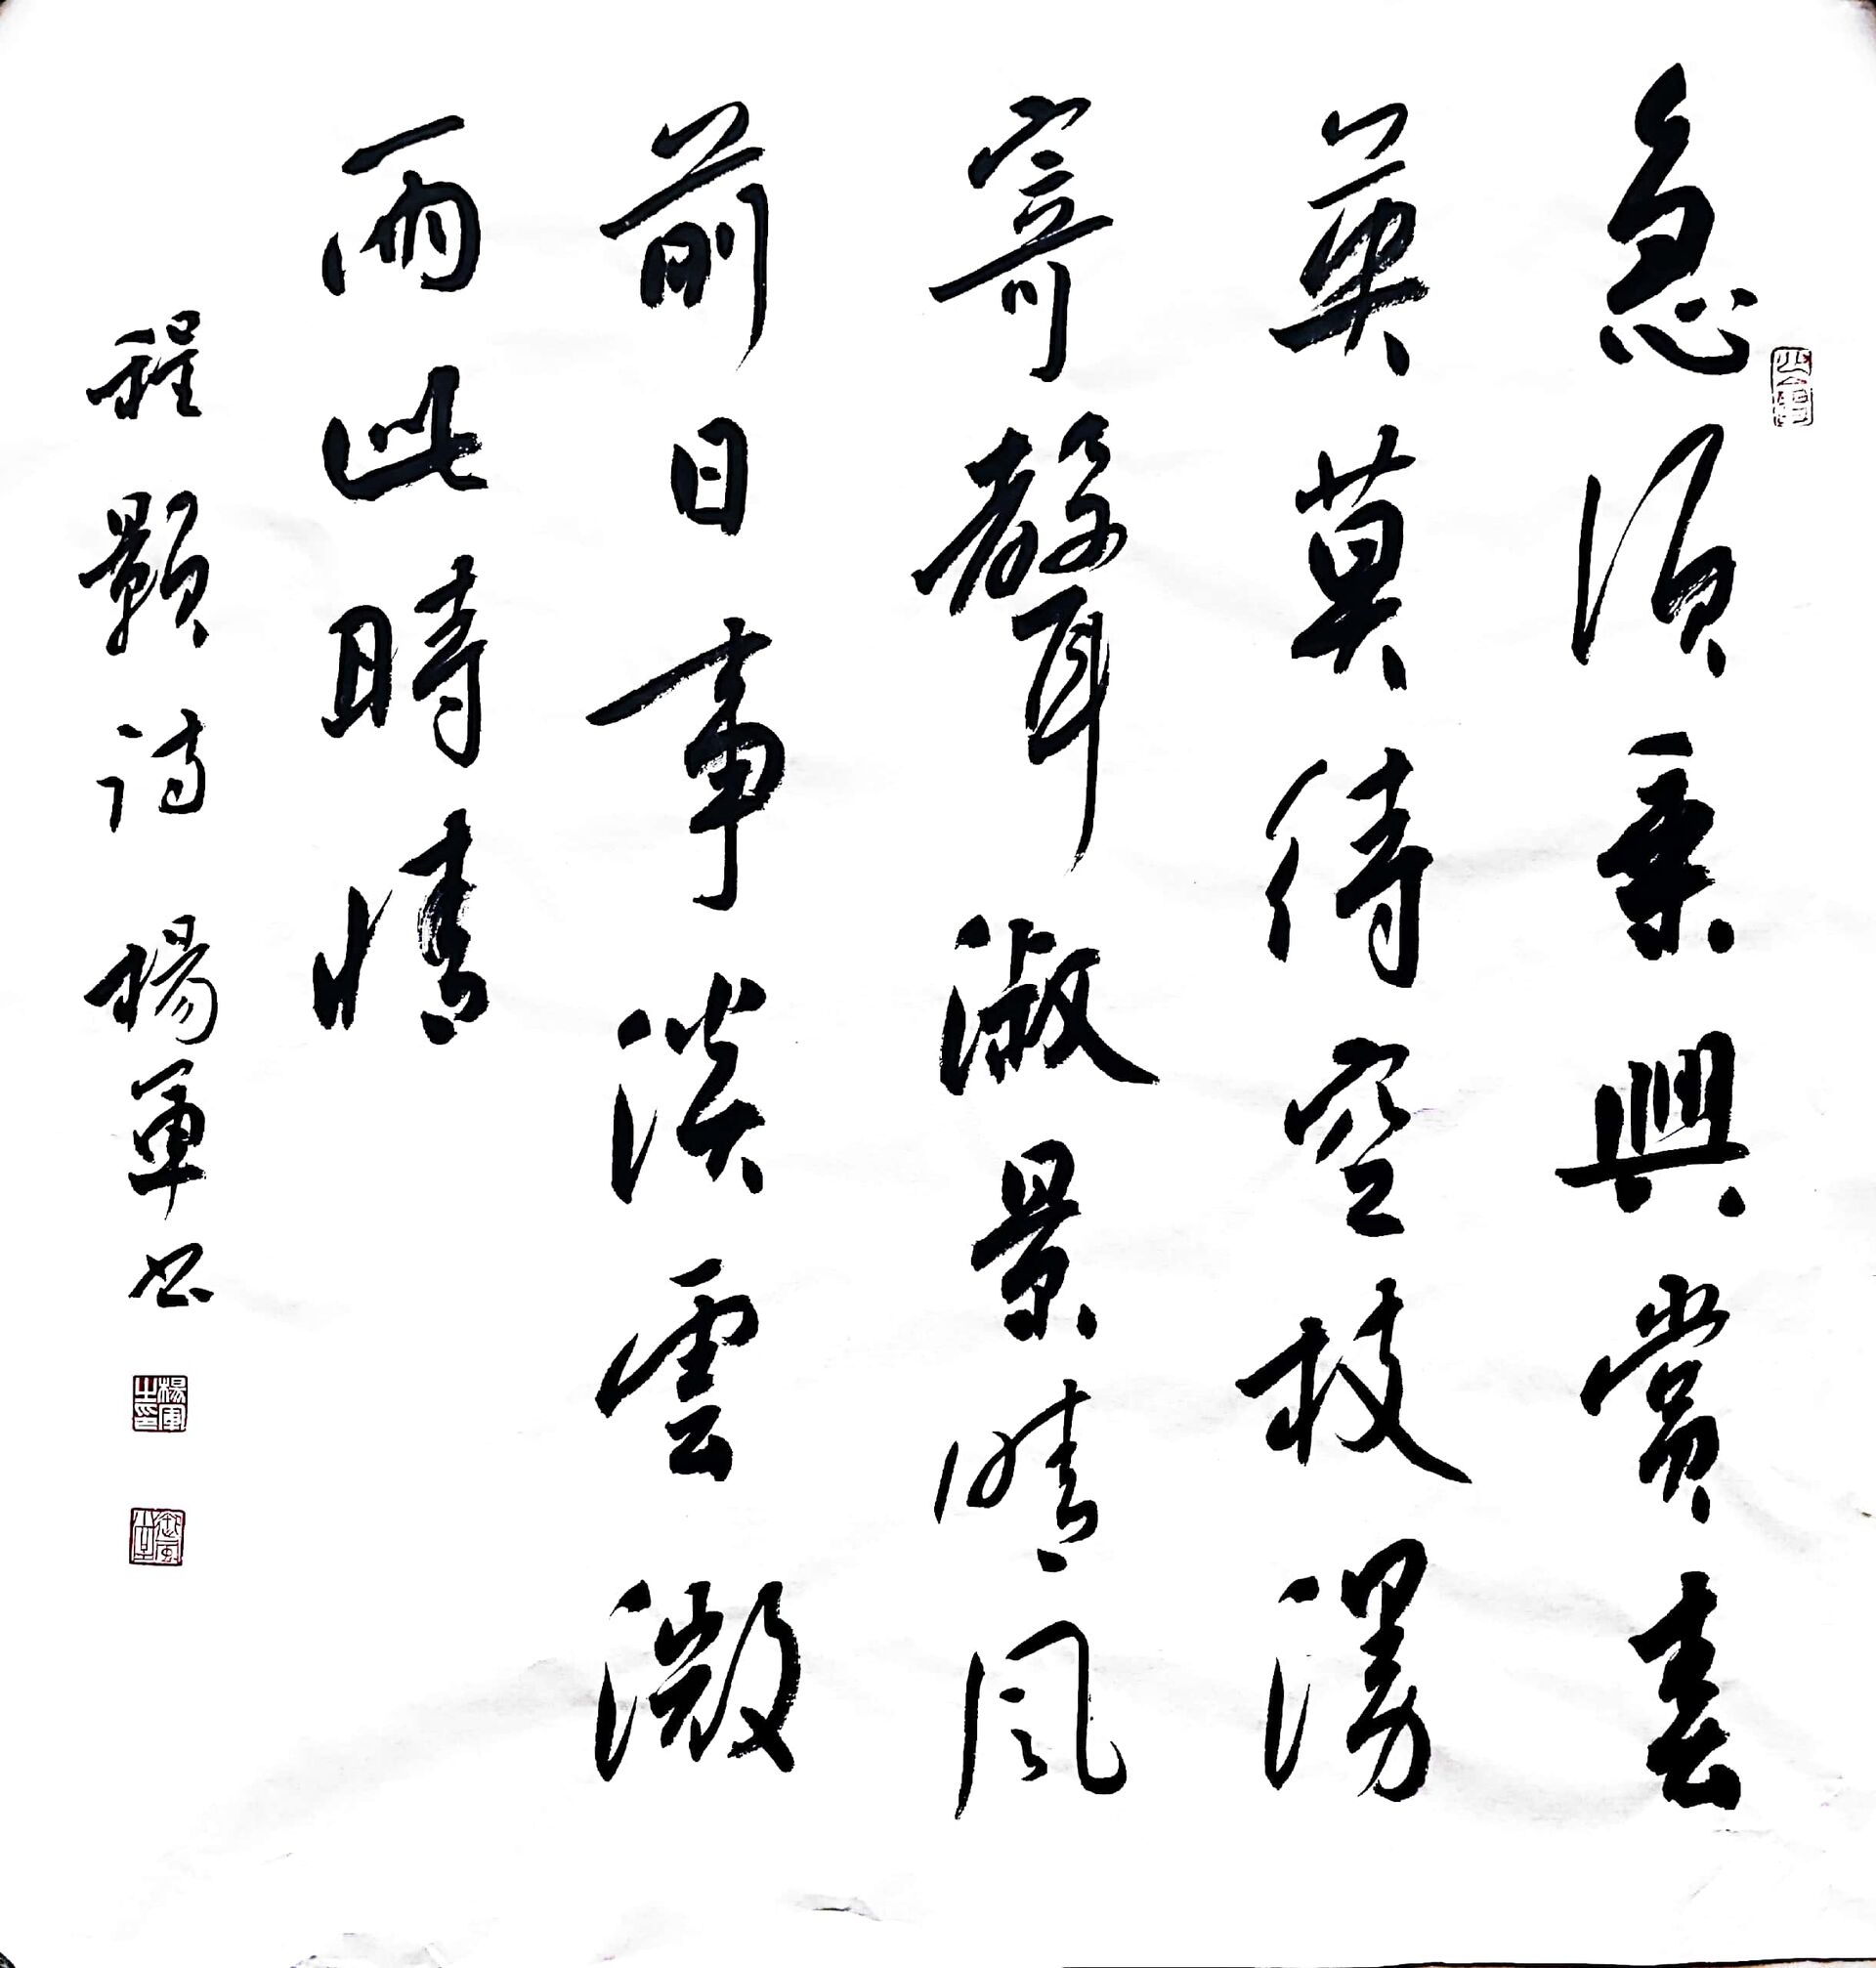 急須乘興賞春
英莫待空枝漫
寄聲淑景晴風
前日事淡雲微
雨此時情
程顥詩 楊軍书
楊軍之印